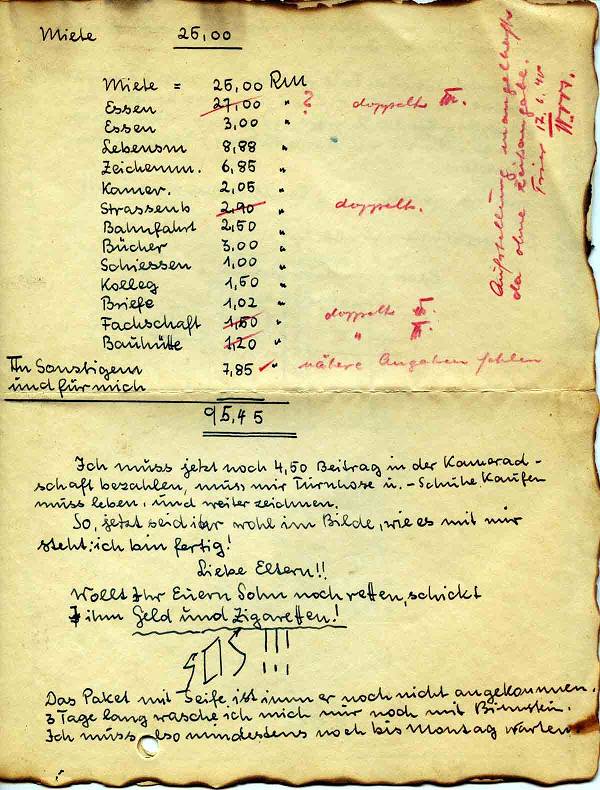 Miete 25,00
Miete = 25,00 RM
Essen 27,00 " ? doppelt
Essen 3,00 "
Lebensm 8,88 "
Zeichenm. 6,85 "
Kamer. 2,05 "
Strassenb 2,90 " doppelt.
Bahnfahrt 2,50 "
Bücher 3,00 "
Schiessen 1,00 "
Kolleg 1,50 "
Briefe 1,02 "
Fachschaft 1,50 " doppelt
Bauhütte 1,20 " "
An Sonstigem 7,85 " nähere Angaben fehlen
und für mich
95,45
Aufstellung mangelhaft
da ohne Zeitangabe.
Trier 17. 6. 40
Ich muss jetzt noch 4,50 Beitrag in der Kamerad-
schaft bezahlen, muss mir Turnhose u. - Schuhe kaufen
muss leben, und weiter zeichnen.
So, jetzt seid ihr wohl im Bilde, wie es mit mir
steht: ich bin fertig!
Liebe Eltern!!
Wollt Ihr Euern Sohn noch retten, schickt
ihm Geld und Zigaretten!
SOS !!!
Das Paket mit Seife ist immer noch nicht angekommen.
3 Tage lang wasche ich mich nur noch mit Bimstein.
Ich muss also mindestens noch bis Montag warten.